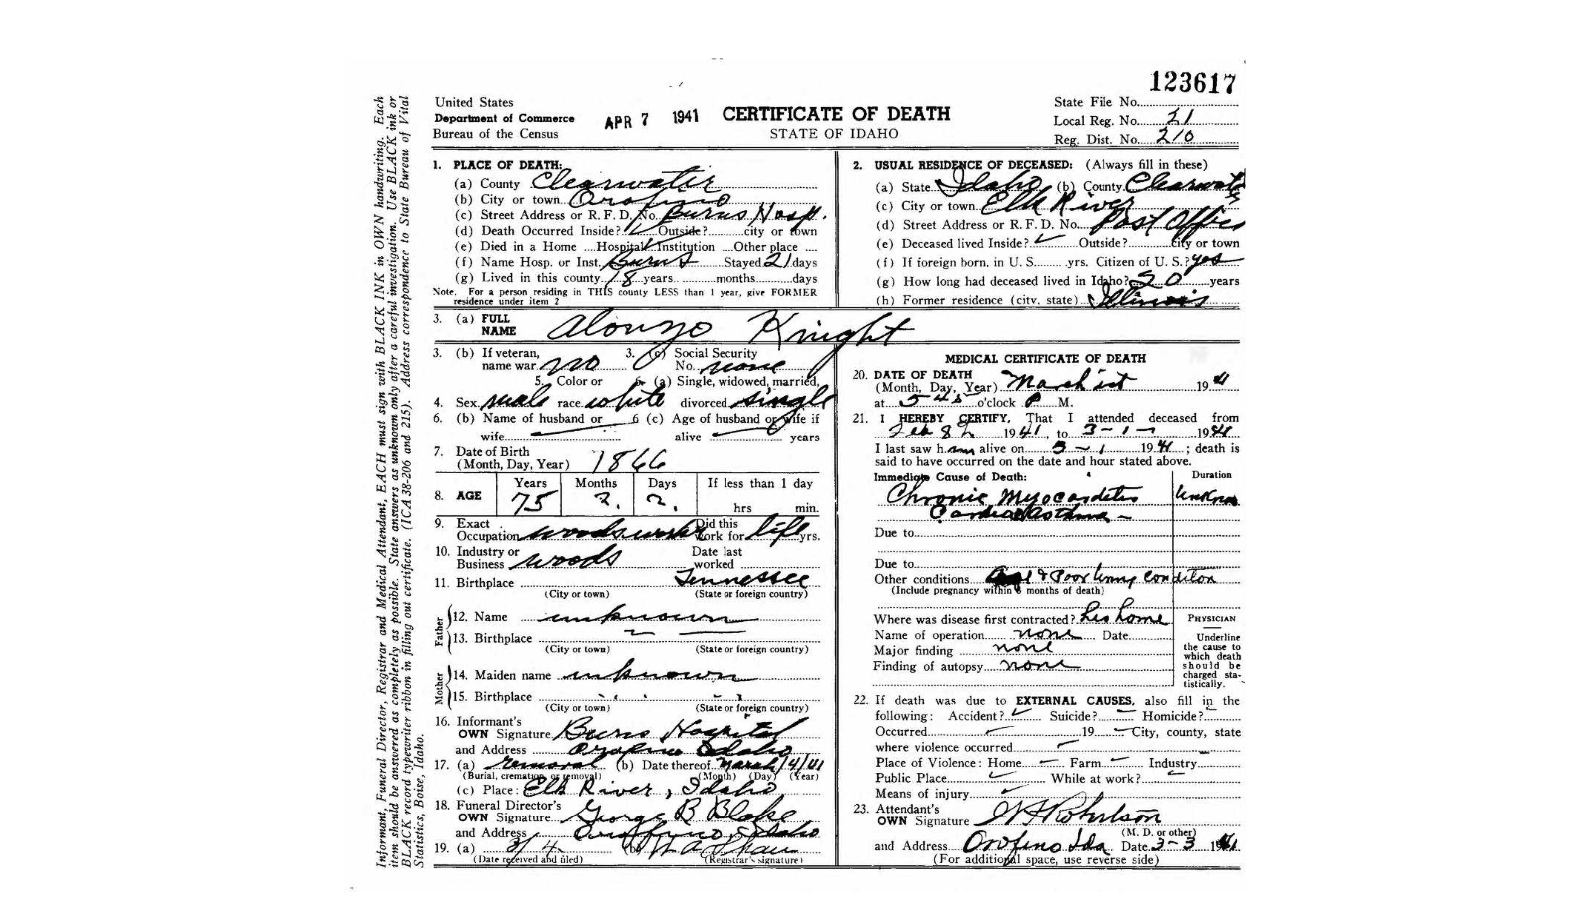 123617
United States
Department of Commerce
Bureau of the Census
APR 7 1941
CERTIFICATE OF DEATH
STATE OF IDAHO
State File No.
Local Reg. No. 21
Reg. Dist. No. 210
Informant, Funeral Director, Registrar and Medical Attendant, EACH must sign with BLACK INK in OWN handwriting. Each
item should be answered as completely as possible. State answers as unknown only after a careful investigation. Use BLACK ink or
BLACK record typewriter ribbon in filling out certificate. (ICA 38-206 and 215). Address correspondence to State Bureau of Vital
Statistics, Boise, Idaho.
1. PLACE OF DEATH:
(a) County Clearwater
(b) City or town Orofino
(c) Street Address or R. F. D. No. Burns Hosp.
(d) Death Occurred Inside? ✓ Outside? city or town
(e) Died in a Home .... Hospital ✓ Institution .... Other place ....
(f) Name Hosp. or Inst. Burns Stayed 21 days
(g) Lived in this county 18 years months days
Note. For a person residing in THIS county LESS than 1 year, give FORMER
residence under item 2
2. USUAL RESIDENCE OF DECEASED: (Always fill in these)
(a) State Idaho (b) County Clearwater
(c) City or town Elk River
(d) Street Address or R. F. D. No. Post Office
(e) Deceased lived Inside? ✓ Outside? city or town
(f) If foreign born, in U. S. yrs. Citizen of U. S.? yes
(g) How long had deceased lived in Idaho? 50 years
(h) Former residence (city, state) Illinois
3. (a) FULL
NAME Alonzo Knight
3. (b) If veteran,
name war no
3. (c) Social Security
No. none
4. Sex male
5. Color or
race white
6. (a) Single, widowed, married,
divorced single
6. (b) Name of husband or
wife
6 (c) Age of husband or wife if
alive years
7. Date of Birth
(Month, Day, Year) 1866
8. AGE
Years Months Days If less than 1 day
75 ? ? hrs min.
9. Exact
Occupation woods work Did this
work for life yrs.
10. Industry or
Business woods Date last
worked
11. Birthplace Tennessee
(City or town) (State or foreign country)
Father
12. Name unknown
13. Birthplace
(City or town) (State or foreign country)
Mother
14. Maiden name unknown
15. Birthplace
(City or town) (State or foreign country)
16. Informant's
OWN Signature Burns Hospital
and Address Orofino Idaho
17. (a) removal (b) Date thereof March/4/41
(Burial, cremation or removal) (Month) (Day) (Year)
(c) Place: Elk River, Idaho
18. Funeral Director's
OWN Signature George B Blake
and Address Orofino, Idaho
19. (a) 3/4 (b)
(Date received and filed) (Registrar's signature)
MEDICAL CERTIFICATE OF DEATH
20. DATE OF DEATH
(Month, Day, Year) March 1st 1941
at 5 45 o'clock P M.
21. I HEREBY CERTIFY, That I attended deceased from
Feb 8th 1941, to 3-1- 1941
I last saw him alive on 3-1- 1941; death is
said to have occurred on the date and hour stated above.
Immediate Cause of Death: Duration
Chronic Myocarditis Unknown
Cardiac Asthma -
Due to
Due to
Other conditions & Poor lung condition
(Include pregnancy within 6 months of death)
Where was disease first contracted? his home
Name of operation none Date
Major finding none
Finding of autopsy none
PHYSICIAN
Underline
the cause to
which death
should be
charged sta-
tistically.
22. If death was due to EXTERNAL CAUSES, also fill in the
following: Accident? Suicide? Homicide?
Occurred 19 City, county, state
where violence occurred
Place of Violence: Home Farm Industry
Public Place While at work?
Means of injury
23. Attendant's
OWN Signature
(M. D. or other)
and Address Orofino Ida Date 3-3 1941
(For additional space, use reverse side)